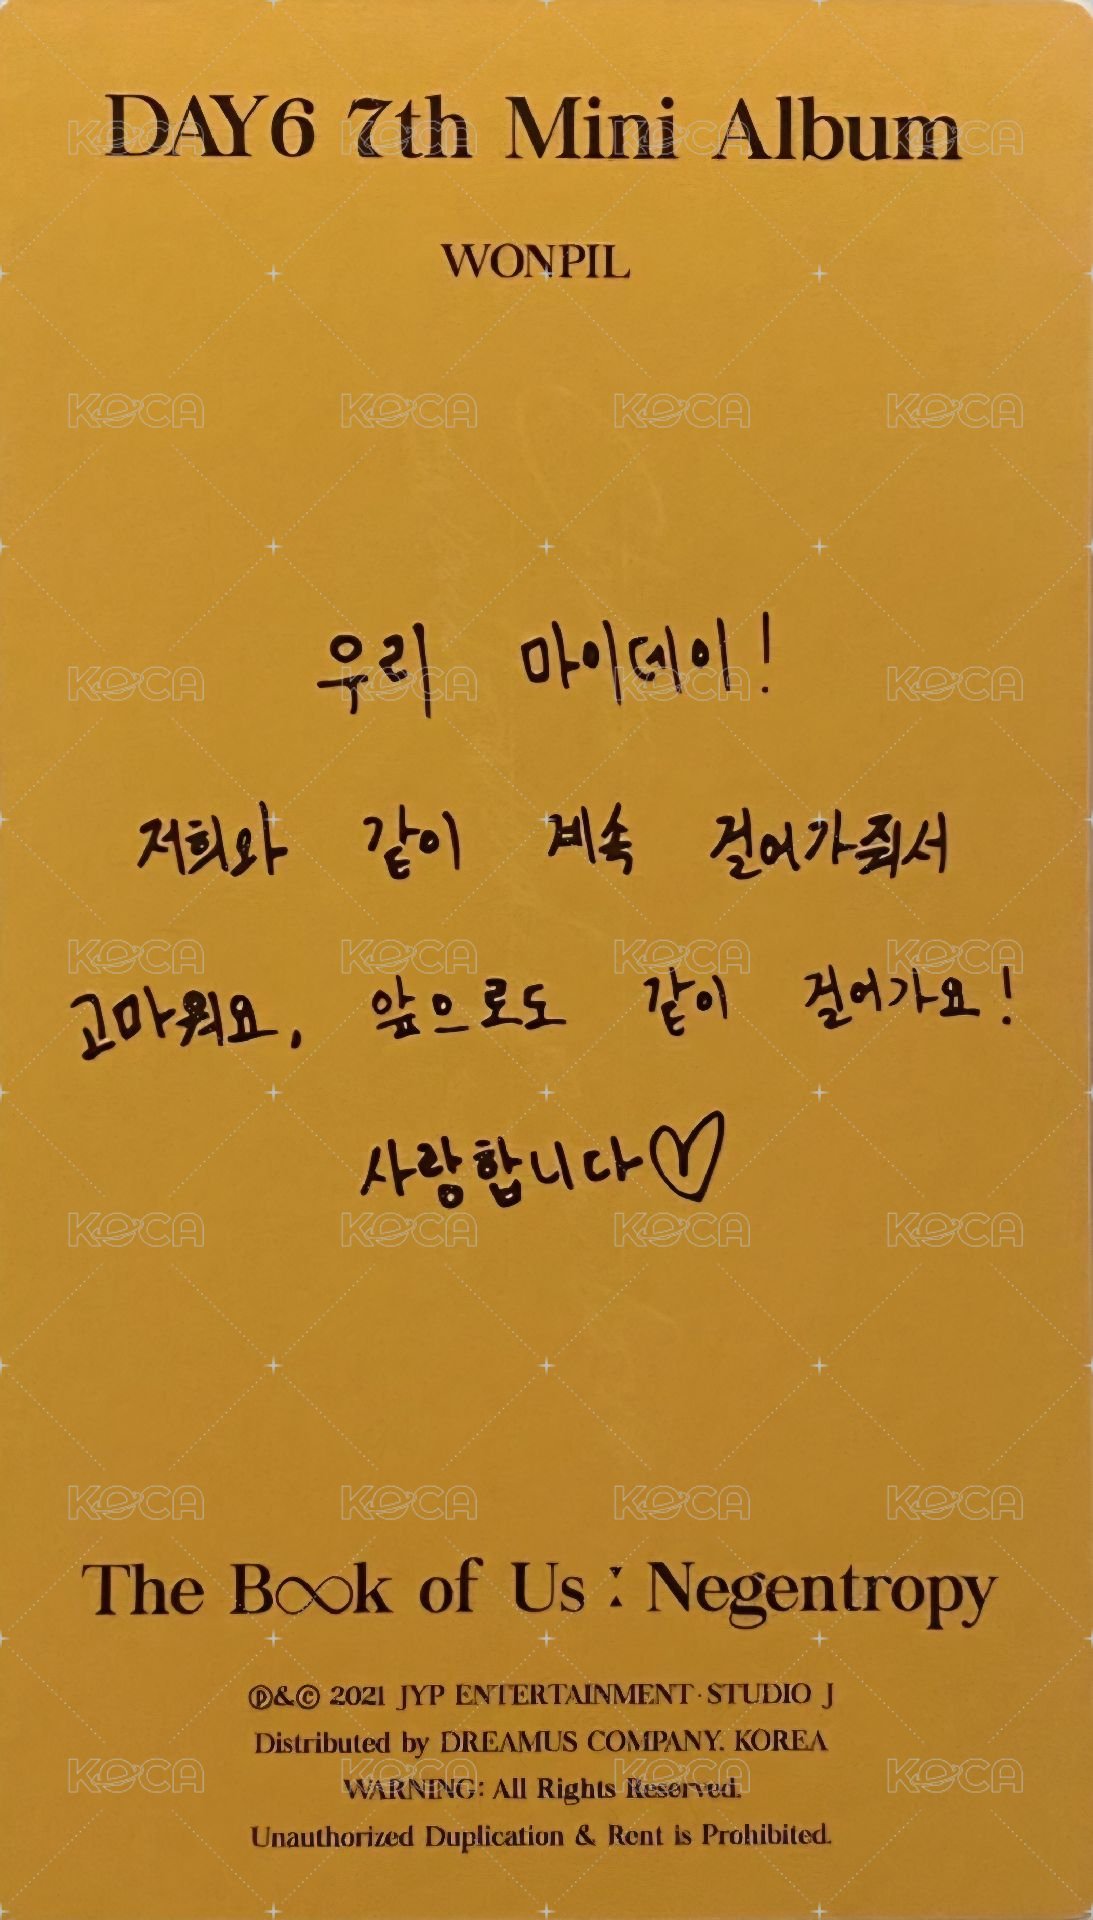 DAY6 7th Mini Album
WONPIL
우리 마이데이!
저희와 같이 계속 걸어가줘서
고마워요, 앞으로도 같이 걸어가요!
사랑합니다♡
The Book of Us : Negentropy
Ⓟ&© 2021 JYP ENTERTAINMENT · STUDIO J
Distributed by DREAMUS COMPANY. KOREA
WARNING: All Rights Reserved.
Unauthorized Duplication & Rent is Prohibited.
KOCA KOCA KOCA KOCA
KOCA KOCA KOCA KOCA
KOCA KOCA KOCA KOCA
KOCA KOCA KOCA KOCA
KOCA KOCA KOCA KOCA
KOCA KOCA KOCA KOCA
KOCA KOCA KOCA KOCA